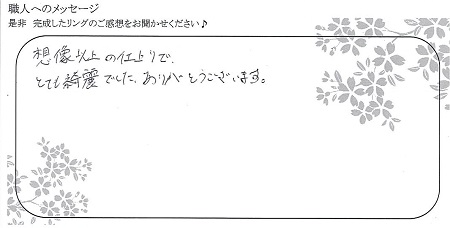 職人へのメッセージ
是非 完成したリングのご感想をお聞かせください♪
想像以上の仕上りで、
とても綺麗でした。ありがとうございます。